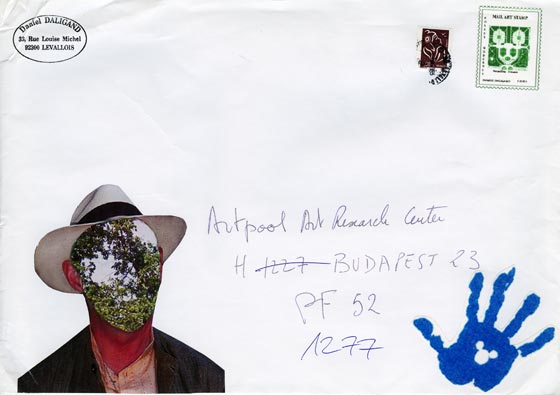 Daniel DALIGAND
33, Rue Louise Michel
92300 LEVALLOIS
MAIL ART STAMP
Artpool Art Research Center
H 1227 BUDAPEST 23
PF 52
1277